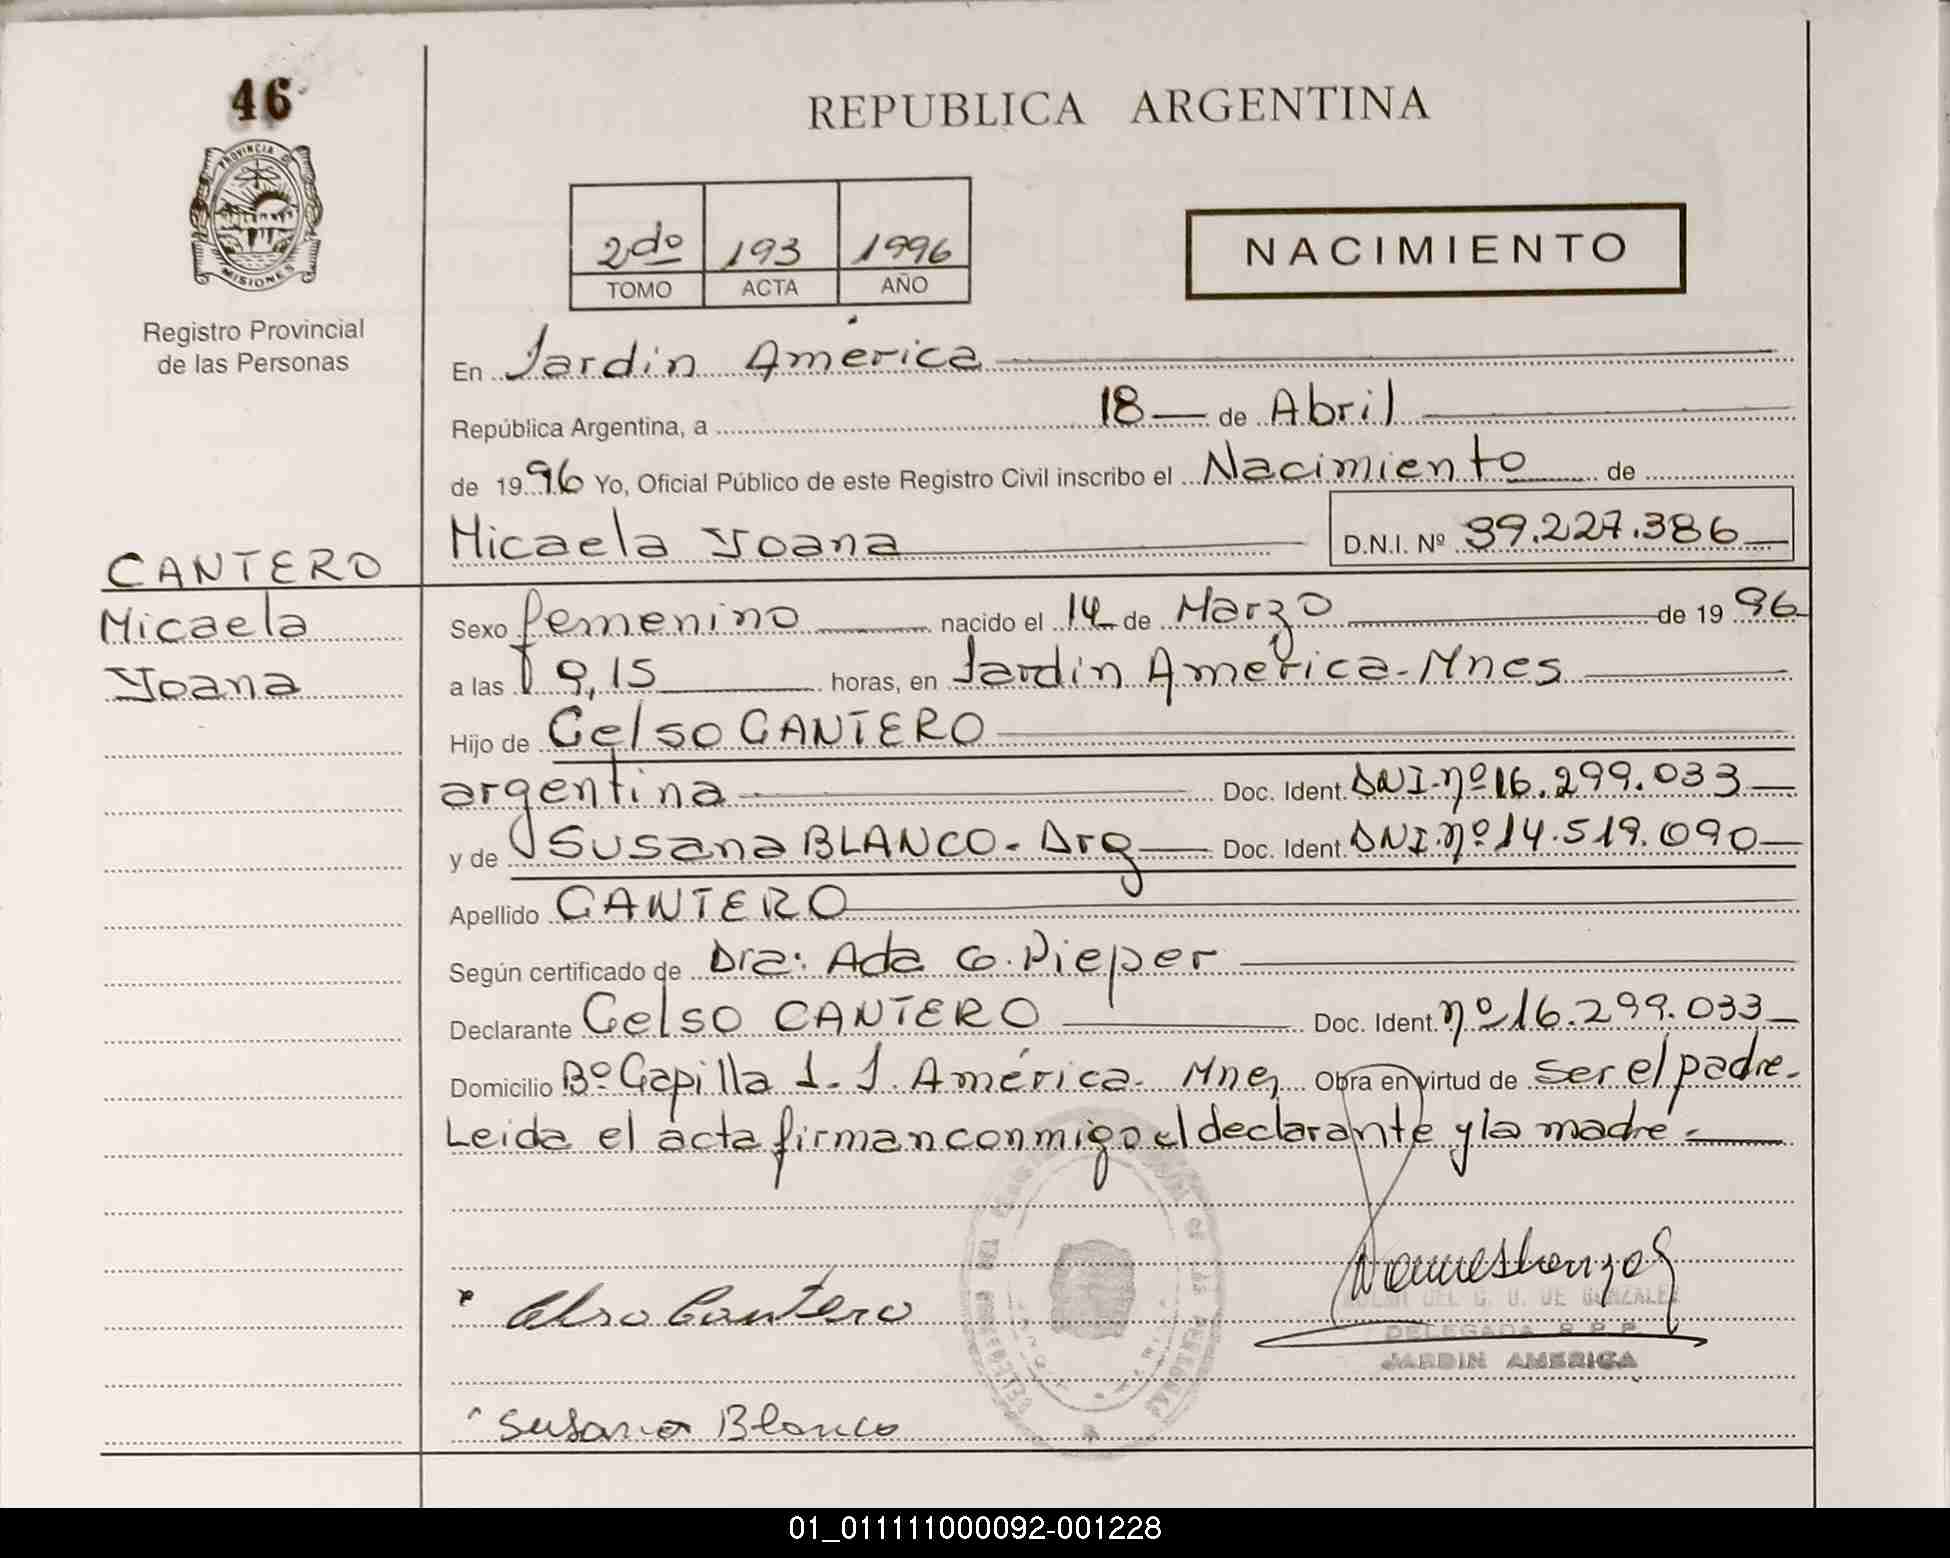 46
PROVINCIA DE
MISIONES
Registro Provincial
de las Personas
REPUBLICA ARGENTINA
2do 193 1996
TOMO ACTA AÑO
NACIMIENTO
En Jardin América
República Argentina, a 18 de Abril
de 1996 Yo, Oficial Público de este Registro Civil inscribo el Nacimiento de
Micaela Yoana D.N.I. Nº 39.227.386
CANTERO
Micaela
Yoana
Sexo femenino nacido el 14 de Marzo de 1996
a las 9,15 horas, en Jardin América-Mnes
Hijo de Celso CANTERO
argentina Doc. Ident. DNI.nº 16.299.033
y de Susana BLANCO - Arg Doc. Ident. DNI.nº 14.519.090
Apellido CANTERO
Según certificado de Dra: Ada G. Pieper
Declarante Celso CANTERO Doc. Ident. nº 16.299.033
Domicilio Bº Capilla J. J. América. Mnes Obra en virtud de ser el padre.
Leida el acta firman conmigo el declarante y la madre.-
Celso Cantero
DE GONZALEZ
DELEGADA R.P.P.
JARDIN AMERICA
Susana Blanco
01_011111000092-001228